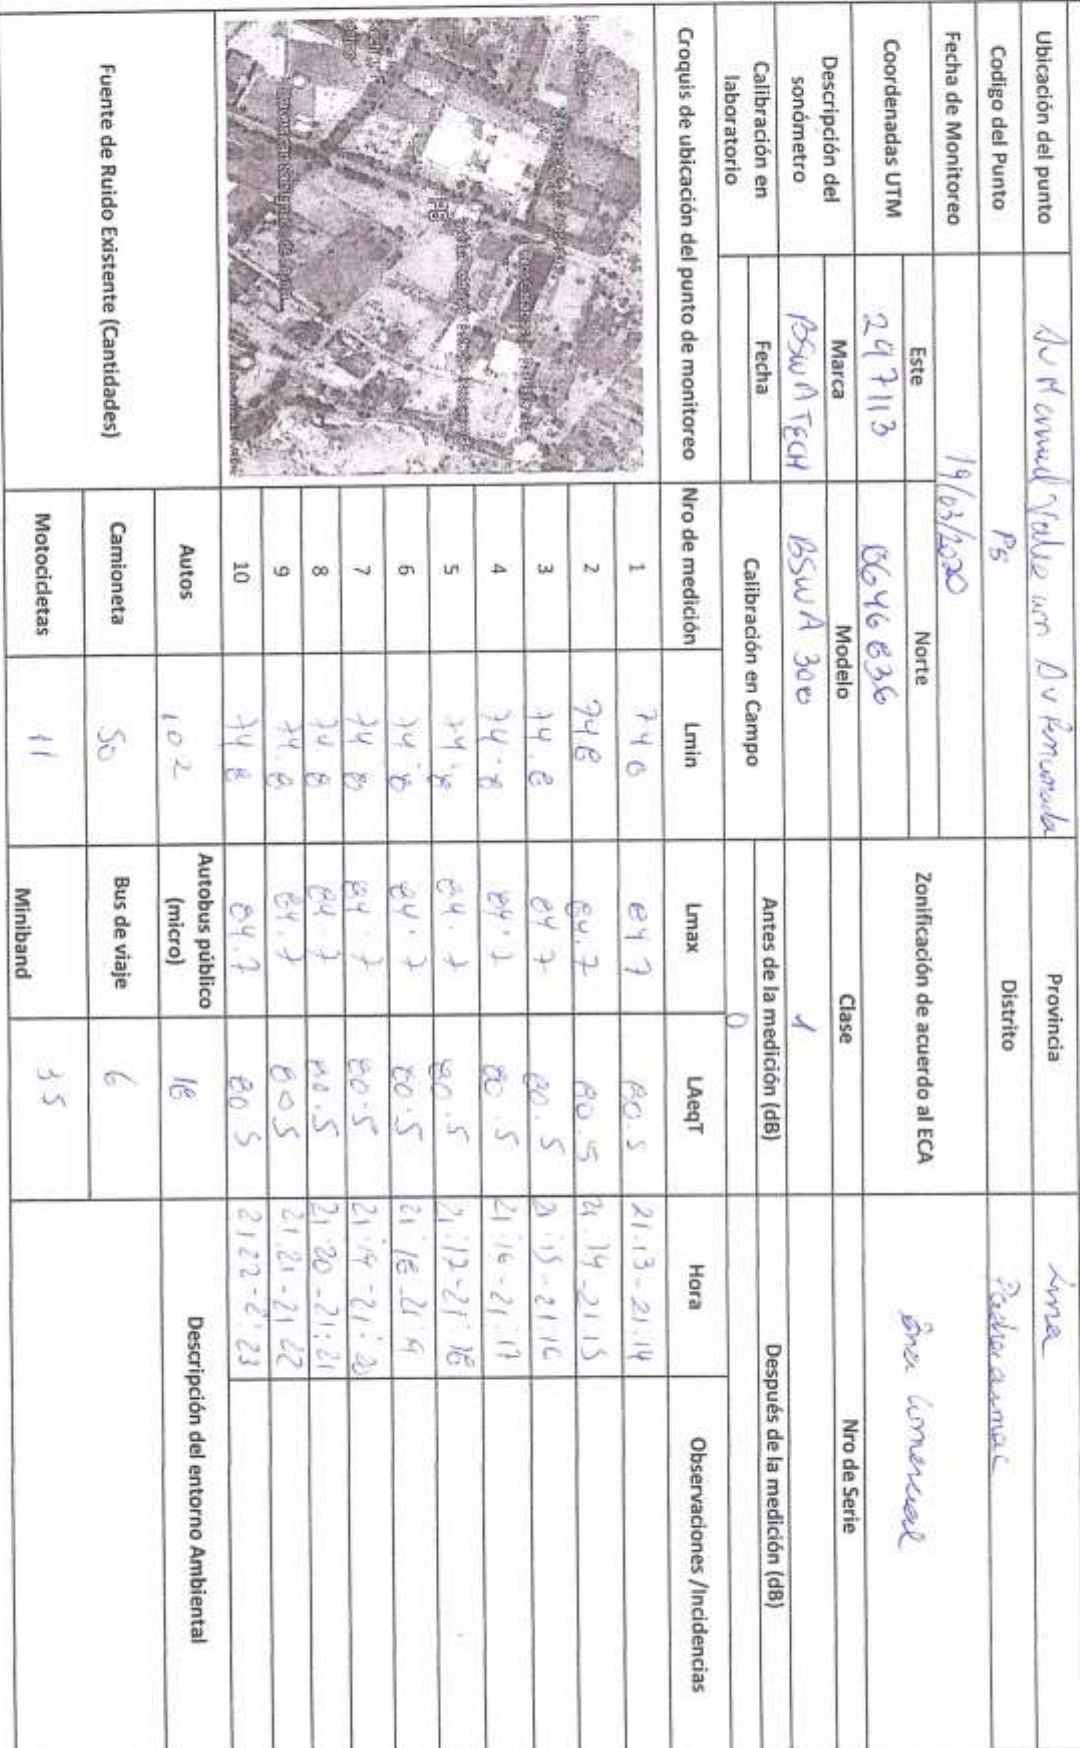 Ubicación del punto Av Manuel Valle con Av Provincia Lima
Codigo del Punto P5 Distrito Pachacamac
Fecha de Monitoreo 19/03/2020
Coordenadas UTM Este Norte Zonificación de acuerdo al ECA Área Comercial
297113 8646836
Descripción del sonómetro Marca Modelo Clase Nro de Serie
BSWA TECH BSWA 308 1
Calibración en laboratorio Fecha Calibración en Campo Antes de la medición (dB) Después de la medición (dB)
0
Croquis de ubicación del punto de monitoreo Nro de medición Lmin Lmax LAeqT Hora Observaciones /Incidencias
P5
1 74 8 84 7 80.5 21:13-21:14
2 74 8 84.7 80.5 21:14-21:15
3 74.8 84 7 80.5 21:15-21:16
4 74.8 84.7 80.5 21:16-21:17
5 74.8 84.7 80.5 21:17-21:18
6 74.8 84.7 80.5 21:18-21:19
7 74 8 84.7 80.5 21:19-21:20
8 74 8 84 7 80.5 21:20-21:21
9 74.8 84.7 80 5 21:21-21:22
10 74 8 84.7 80 5 21:22-21:23
Fuente de Ruido Existente (Cantidades) Autos 102 Autobus público (micro) 18 Descripción del entorno Ambiental
Camioneta 50 Bus de viaje 6
Motocicletas 11 Miniband 35